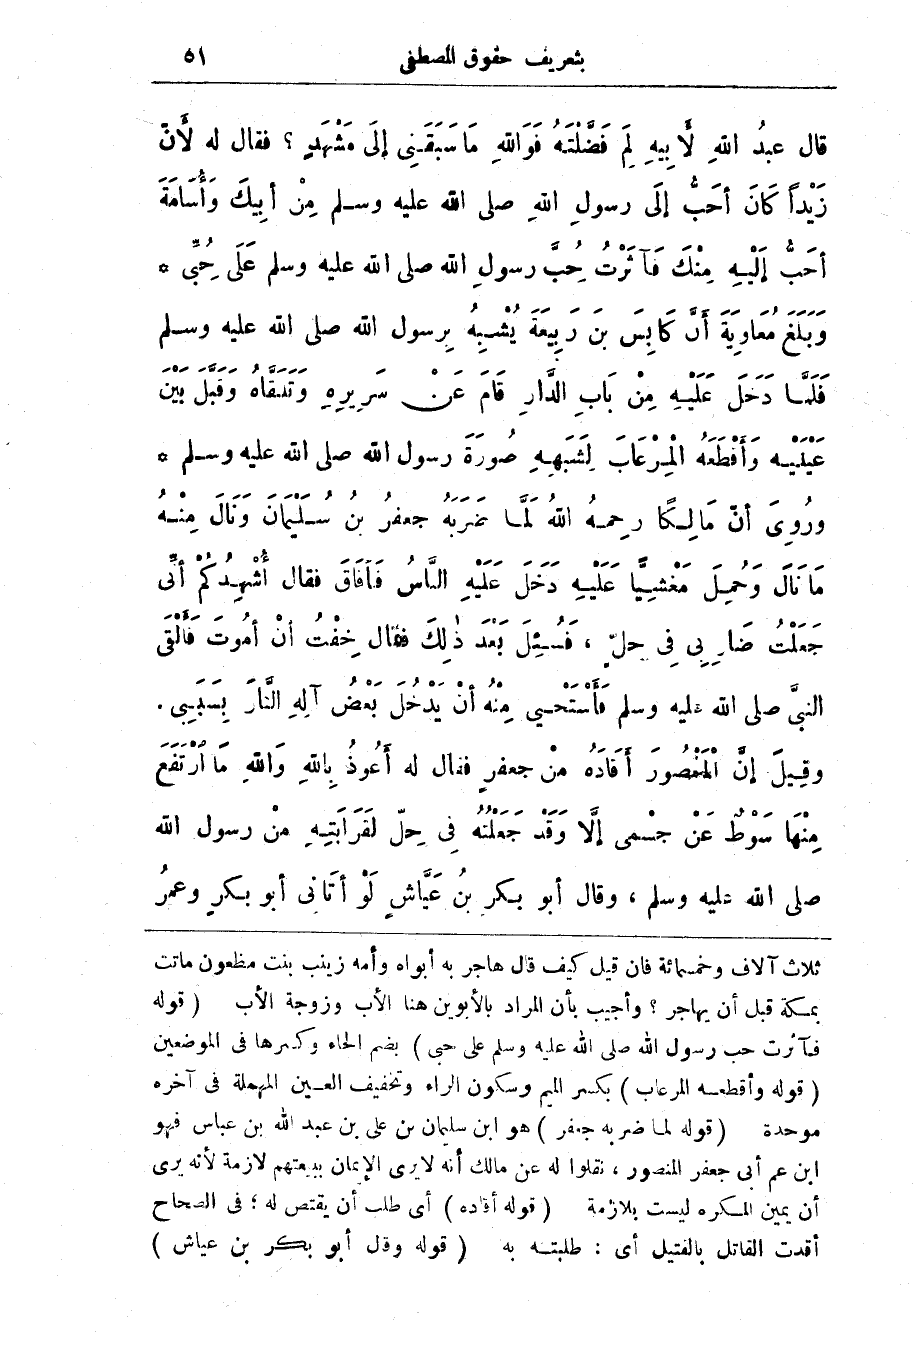 بتعريف حقوق المصطفى ٥١
قال عبدُ اللهِ لِأَبِيهِ لِمَ فَضَّلْتَهُ فَوَاللهِ مَا سَبَقَنِي إِلَى مَشْهَدٍ ؟ فقال له لأَنّ
زَيْداً كَانَ أَحَبُّ إلَى رسولِ اللهِ صلى الله عليه وسلم مِنْ أبِيكَ وَأُسَامَةَ
أحَبُّ إلَيْهِ مِنْكَ فَآثَرْتُ حِبَّ رسولِ الله صلى الله عليه وسلم عَلَى حِبِّى *
وَبَلَغَ مُعَاوِيَةَ أَنَّ كَابِسَ بنَ رَبِيعَةَ يُشْبِهُ بِرسول الله صلى الله عليه وسلم
فَلَمَّا دَخَلَ عَلَيْهِ مِنْ بَابِ الدَّارِ قَامَ عَنْ سَرِيرِهِ وَتَلَقَّاهُ وَقَبَّلَ بَيْنَ
عَيْنَيْهِ وَأَقْطَعَهُ الْمِرْعَابَ لِشَبَهِهِ صُورَةَ رسول الله صلى الله عليه وسلم *
ورُوِىَ أنّ مَالِكًا رحمهُ اللهُ لَمَّا ضَرَبَهُ جعفرُ بنُ سُلَيْمَانَ وَنَالَ مِنْهُ
مَا نَالَ وَحُمِلَ مَغْشِيًّا عَلَيْهِ دَخَلَ عَلَيْهِ النَّاسُ فَأَفَاقَ فقال أُشْهِدُكُمْ أَنِّى
جَعَلْتُ ضَارِبِى فِى حِلٍّ ، فَسُئِلَ بَعْدَ ذٰلِكَ فقال خِفْتُ أَنْ أمُوتَ فَأَلْقَى
النبيَّ صلى الله عليه وسلم فَأَسْتَحْيِى مِنْهُ أَنْ يَدْخُلَ بَعْضُ آلِهِ النَّارَ بِسَبَبِى .
وقِيلَ إنَّ الْمَنْصُورَ أَقَادَهُ مِنْ جعفرٍ فقال له أَعُوذُ بِاللهِ وَاللهِ مَا ارْتَفَعَ
مِنْهَا سَوْطٌ عَنْ جِسْمِى إلَّا وَقَدْ جَعَلْتُهُ فِى حِلٍّ لِقَرَابَتِهِ مِنْ رسول الله
صلى الله عليه وسلم ، وقال أبو بكر بنُ عَيَّاشٍ لَوْ أَتَانِى أبو بكرٍ وعمرُ
ثلاث آلاف وخمسمائة فان قيل كيف قال هاجر به أبواه وأمه زينب بنت مظعون ماتت
بمكة قبل أن يهاجر ؟ وأجيب بأن المراد بالأبوين هنا الأب وزوجة الأب ( قوله
فآثرت حب رسول الله صلى الله عليه وسلم على حبى ) بضم الحاء وكسرها فى الموضعين
( قوله وأقطعه المرعاب ) بكسر الميم وسكون الراء وتخفيف العين المهملة فى آخره
موحدة ( قوله لما ضربه جعفر ) هو ابن سليمان بن على بن عبد الله بن عباس فهو
ابن عم أبى جعفر المنصور ، نقلوا له عن مالك أنه لايرى الإيمان ببيعتهم لازمة لأنه يرى
أن يمين المكره ليست بلازمة ( قوله أقاده ) أى طلب أن يقتص له ؛ فى الصحاح
أقدت القاتل بالقتيل أى : طلبته به ( قوله وقال أبو بكر بن عياش )